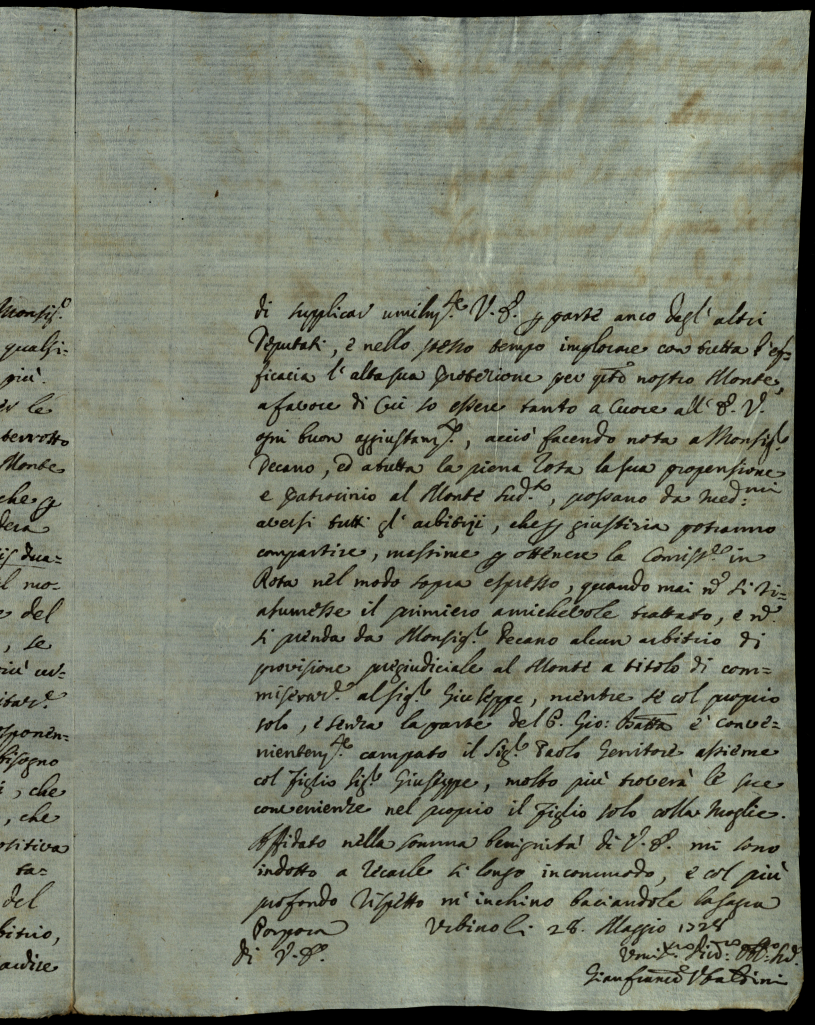 Monsig.e
qualsi=
più.
er le
terrotto
Monte
che p
dera
is dua=
l mo=
e del
, se
esponen=
bisogno
, che
, che
ositiva
ta=
del
bitrio,
ardire
di supplicar umilm.te V. E. p parte anco degl' altri
Deputati, e nello stesso tempo implorare con tutta l'ef=
ficacia l' alta sua protezione per q.to nostro Monte,
a favore di cui so essere tanto a cuore all' E. V.
ogni buon aggiustam.to, acciò facendo nota a Monsig.e
Decano, ed a tutta la piena Rota la sua propensione
e patrocinio al Monte sud.to, possano da med.mi
aversi tutti gl' arbitrij, che p giustizia potranno
compartire, massime p ottenere la Comiss.e in
Rota nel modo sopra espresso, quando mai n. si ri=
assumesse il primiero amichevole trattato, e n.
si prenda da Monsig.e Decano alcun arbitrio di
provisione pregiudiciale al Monte a titolo di com=
miseraz.e al sig.e Giuseppe, mentre se col proprio
solo, e senza la parte del P. Gio: Batta è conve=
nientem.te campato il Sig.e Paolo Genitore assieme
col figlio sig.e Giuseppe, molto più troverà le sue
convenienze nel proprio il figlio solo colla Moglie.
Affidato nella somma benignità di V. E. mi sono
indotto a recarle sì longo incommodo, e col più
profondo rispetto m' inchino baciandole la sacra
Porpora Urbino li 28. Maggio 1728
di V. E.
Umil.mo Div.mo Obl.mo Sr.e
Gianfranco Ubaldini